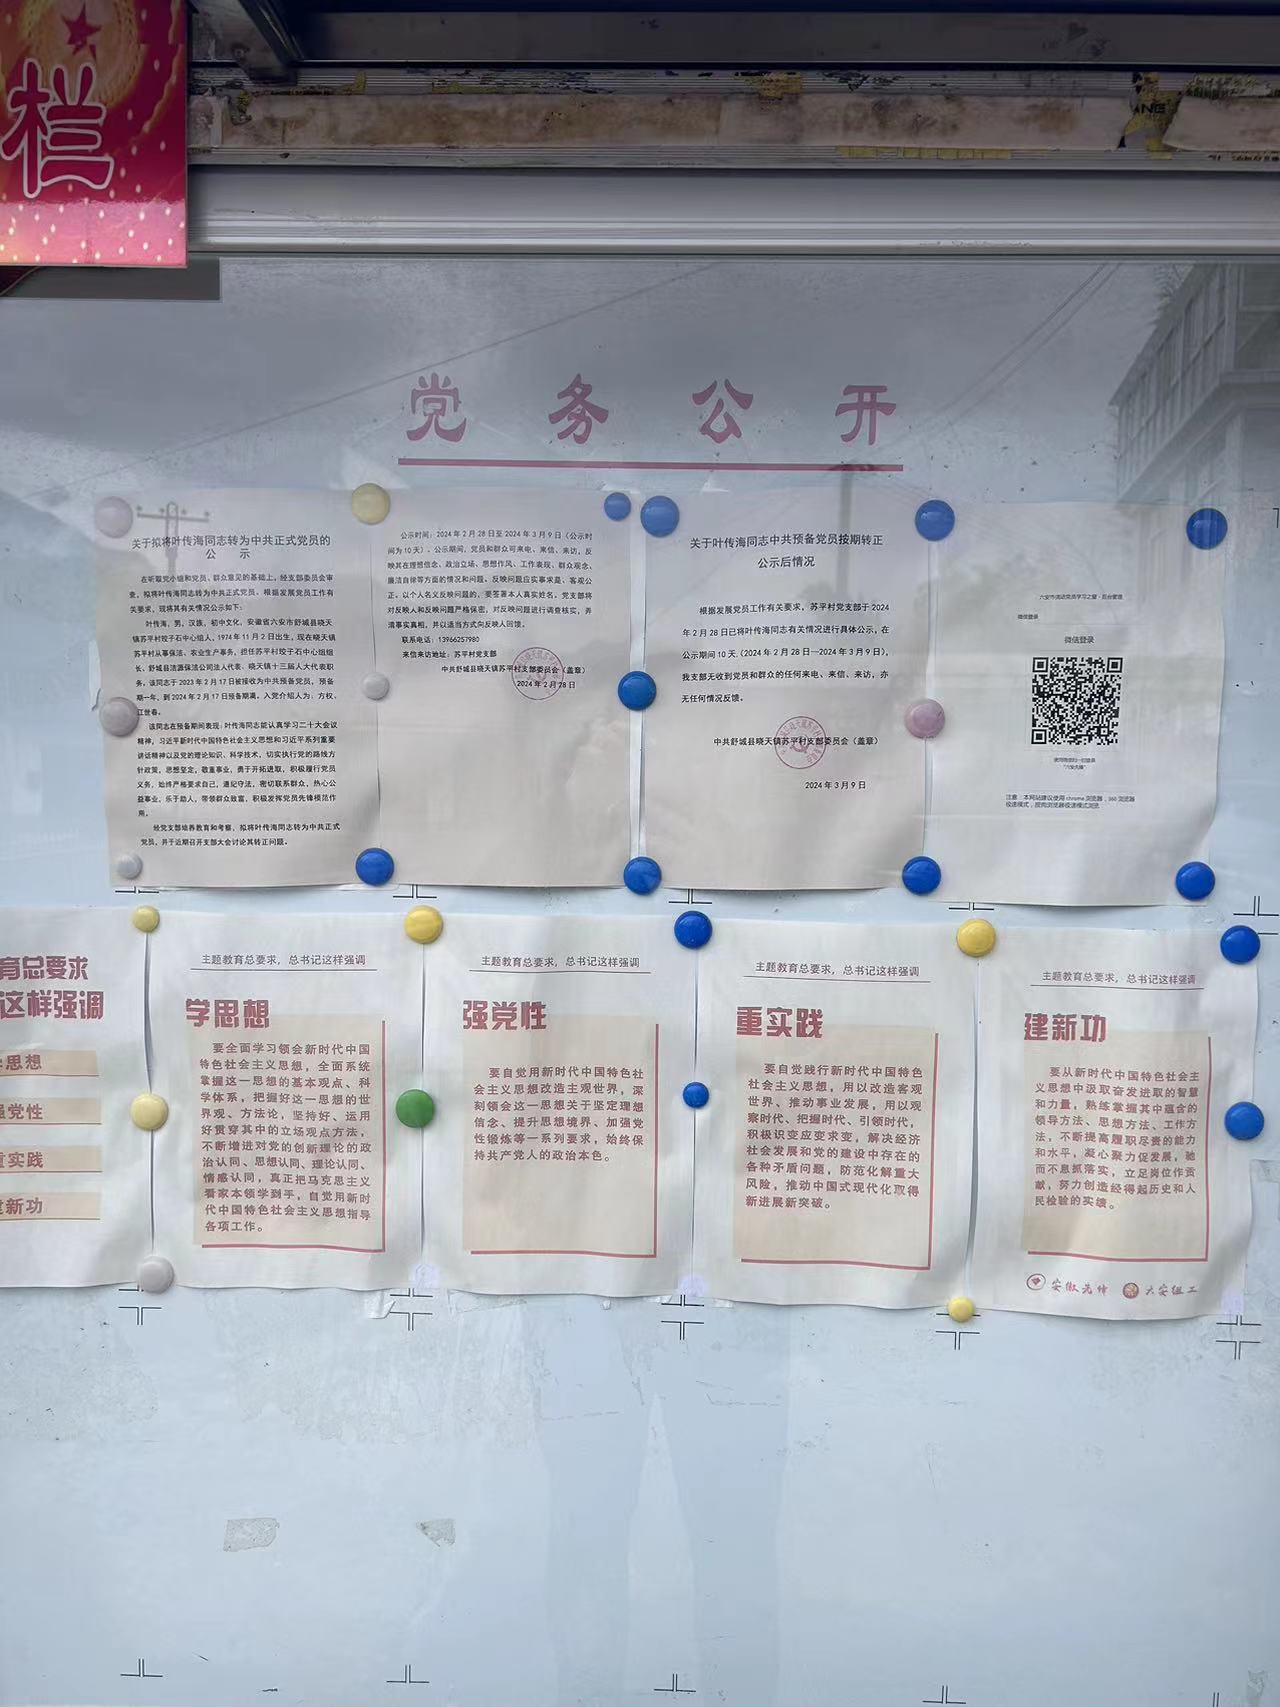 栏
党务公开
关于拟将叶传海同志转为中共正式党员的
公 示
在听取党小组和党员、群众意见的基础上，经支部委员会审
查，拟将叶传海同志转为中共正式党员。根据发展党员工作有
关要求，现将其有关情况公示如下：
叶传海，男，汉族，初中文化，安徽省六安市舒城县晓天
镇苏平村饺子石中心组人，1974年11月2日出生，现在晓天镇
苏平村从事保洁、农业生产事务，担任苏平村饺子石中心组组
长、舒城县洁源保洁公司法人代表、晓天镇十三届人大代表职
务。该同志于2023年2月17日被接收为中共预备党员，预备
期一年，到2024年2月17日预备期满。入党介绍人为：方权、
江世春。
该同志在预备期间表现：叶传海同志能认真学习二十大会议
精神，习近平新时代中国特色社会主义思想和习近平系列重要
讲话精神以及党的理论知识、科学技术，切实执行党的路线方
针政策，思想坚定，敬重事业，勇于开拓进取，积极履行党员
义务，始终严格要求自己，遵纪守法，密切联系群众，热心公
益事业，乐于助人，带领群众致富，积极发挥党员先锋模范作
用。
经党支部培养教育和考察，拟将叶传海同志转为中共正式
党员，并于近期召开支部大会讨论其转正问题。
公示时间：2024年2月28日至2024年3月9日（公示时
间为10天）。公示期间，党员和群众可来电、来信、来访，反
映其在理想信念、政治立场、思想作风、工作表现、群众观念、
廉洁自律等方面的情况和问题。反映问题应实事求是、客观公
正。以个人名义反映问题的，要签署本人真实姓名。党支部将
对反映人和反映问题严格保密，对反映问题进行调查核实，弄
清事实真相，并以适当方式向反映人回馈。
联系电话：13966257980
来信来访地址：苏平村支部
中共舒城县晓天镇苏平村支部委员会（盖章）
2024年2月28日
关于叶传海同志中共预备党员按期转正
公示后情况
根据发展党员工作有关要求，苏平村党支部于2024
年2月28日已将叶传海同志有关情况进行具体公示，在
公示期间10天，（2024年2月28日—2024年3月9日），
我支部无收到党员和群众的任何来电、来信、来访，亦
无任何情况反馈。
中共舒城县晓天镇苏平村支部委员会（盖章）
2024年3月9日
六安市流动党员学习之窗·后台管理
微信登录
微信登录
使用微信扫一扫登录
“六安先锋”
注意：本网站建议使用 chrome 浏览器，360 浏览器
极速模式，搜狗浏览器极速模式浏览
育总要求
这样强调
思想
党性
实践
新功
主题教育总要求，总书记这样强调
学思想
要全面学习领会新时代中国
特色社会主义思想，全面系统
掌握这一思想的基本观点、科
学体系，把握好这一思想的世
界观、方法论，坚持好、运用
好贯穿其中的立场观点方法，
不断增进对党的创新理论的政
治认同、思想认同、理论认同、
情感认同，真正把马克思主义
看家本领学到手，自觉用新时
代中国特色社会主义思想指导
各项工作。
主题教育总要求，总书记这样强调
强党性
要自觉用新时代中国特色社
会主义思想改造主观世界，深
刻领会这一思想关于坚定理想
信念、提升思想境界、加强党
性锻炼等一系列要求，始终保
持共产党人的政治本色。
主题教育总要求，总书记这样强调
重实践
要自觉践行新时代中国特色
社会主义思想，用以改造客观
世界、推动事业发展，用以观
察时代、把握时代、引领时代，
积极识变应变求变，解决经济
社会发展和党的建设中存在的
各种矛盾问题，防范化解重大
风险，推动中国式现代化取得
新进展新突破。
主题教育总要求，总书记这样强调
建新功
要从新时代中国特色社会主
义思想中汲取奋发进取的智慧
和力量，熟练掌握其中蕴含的
领导方法、思想方法、工作方
法，不断提高履职尽责的能力
和水平，凝心聚力促发展，驰
而不息抓落实，立足岗位作贡
献，努力创造经得起历史和人
民检验的实绩。
安徽先锋 六安组工